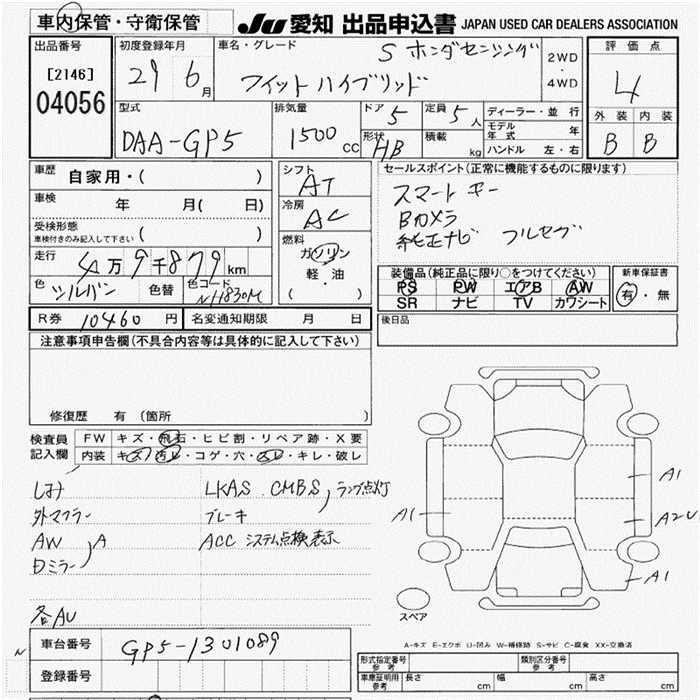 車内保管・守衛保管
JU 愛知 出品申込書 JAPAN USED CAR DEALERS ASSOCIATION
出品番号
[2146]
04056
初度登録年月
29 6月
車名・グレード
S ホンダセンシング
フィットハイブリッド
2WD
・
4WD
評価点
4
外装 内装
B B
型式
DAA-GP5
排気量
1500cc
ドア 5
形状 HB
定員 5人
積載 kg
ディーラー・並行
モデル年式 年
ハンドル 左・右
車歴 自家用・( )
車検 年 月( 日)
受検形態
車検付きのみ記入して下さい ( )
走行 4万9千879km
色 シルバー 色替 色コード NH830M
シフト
AT
冷房
AC
燃料
ガソリン
軽・油
( )
セールスポイント(正常に機能するものに限ります)
スマートキー
Bカメラ
純正ナビ フルセグ
装備品(純正品に限り○をつけてください)
PS PW エアB AW
SR ナビ TV カワシート
新車保証書
有・無
R券 10460円 名変通知期限 月 日
後日品
注意事項申告欄(不具合内容等は具体的に記入して下さい)
修復歴 有(箇所 )
検査員
記入欄
FW キズ・飛石・ヒビ割・リペア跡・X要
内装 キズ・汚レ・コゲ・穴・スレ・キレ・破レ
しみ
外マフラー
AW
Dミラー A
各AU
LKAS CMBS ランプ点灯
ブレーキ
ACC システム点検表示
A1
A1
A2U
A1
スペア
A-キズ E-エクボ U-凹み W-補修跡 S-サビ C-腐食 XX-交換済
N
車台番号 GP5-1301089
登録番号
形式指定番号
参考
類別区分番号
参考
車庫証明用
参考
長さ cm 幅 cm 高さ cm